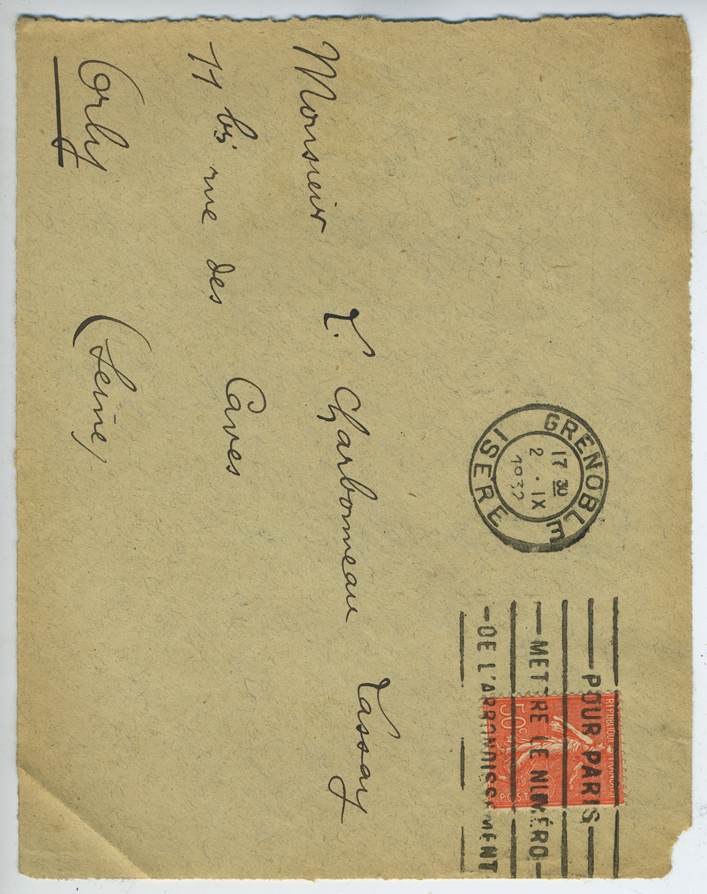 GRENOBLE
17 30
2 . IX
1932
ISERE
—POUR PARIS—
—METTRE LE NUMÉRO—
—DE L'ARRONDISSEMENT
REPUBLIQUE FRANÇAISE
50c
POST
Monsieur L. Charbonneau Lassay
11 bis rue des Caves
Orly (Seine)